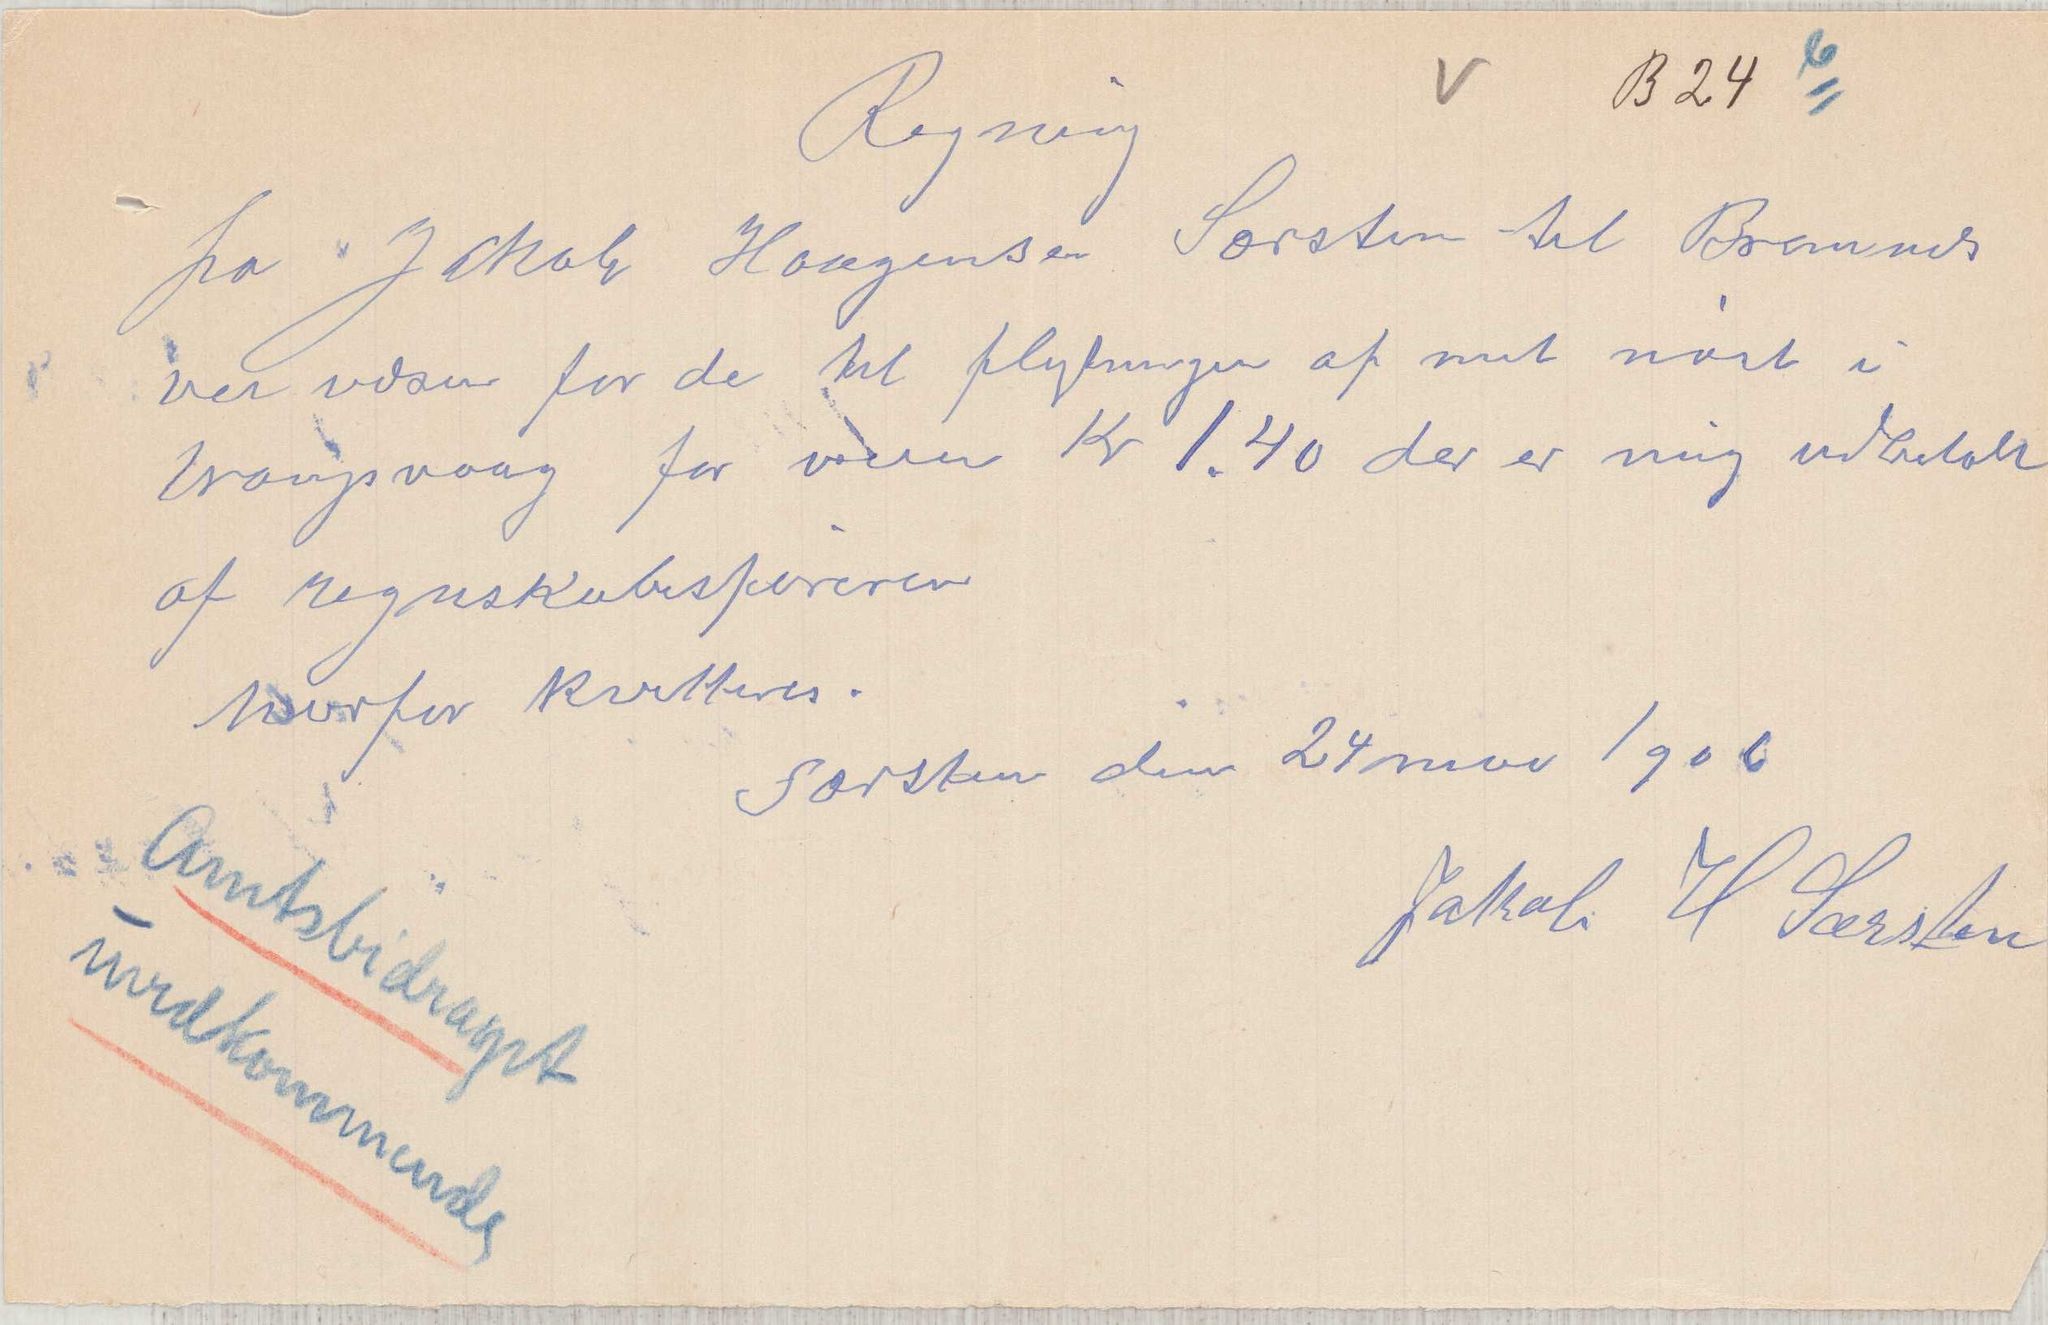 V B 24 6
Regning
fra Jakob Haagensen Sørsten til Bremnes
vei væsen for de til flytningen af mit nøst i
Vrangsvaag for veien Kr 1.40 der er mig udbetalt
af regnskabesføreren
hvorfor kvitteres.
Sørsten den 24 nov 1906
Jakob H Sørsten
Amtsbidraget
uvedkommende